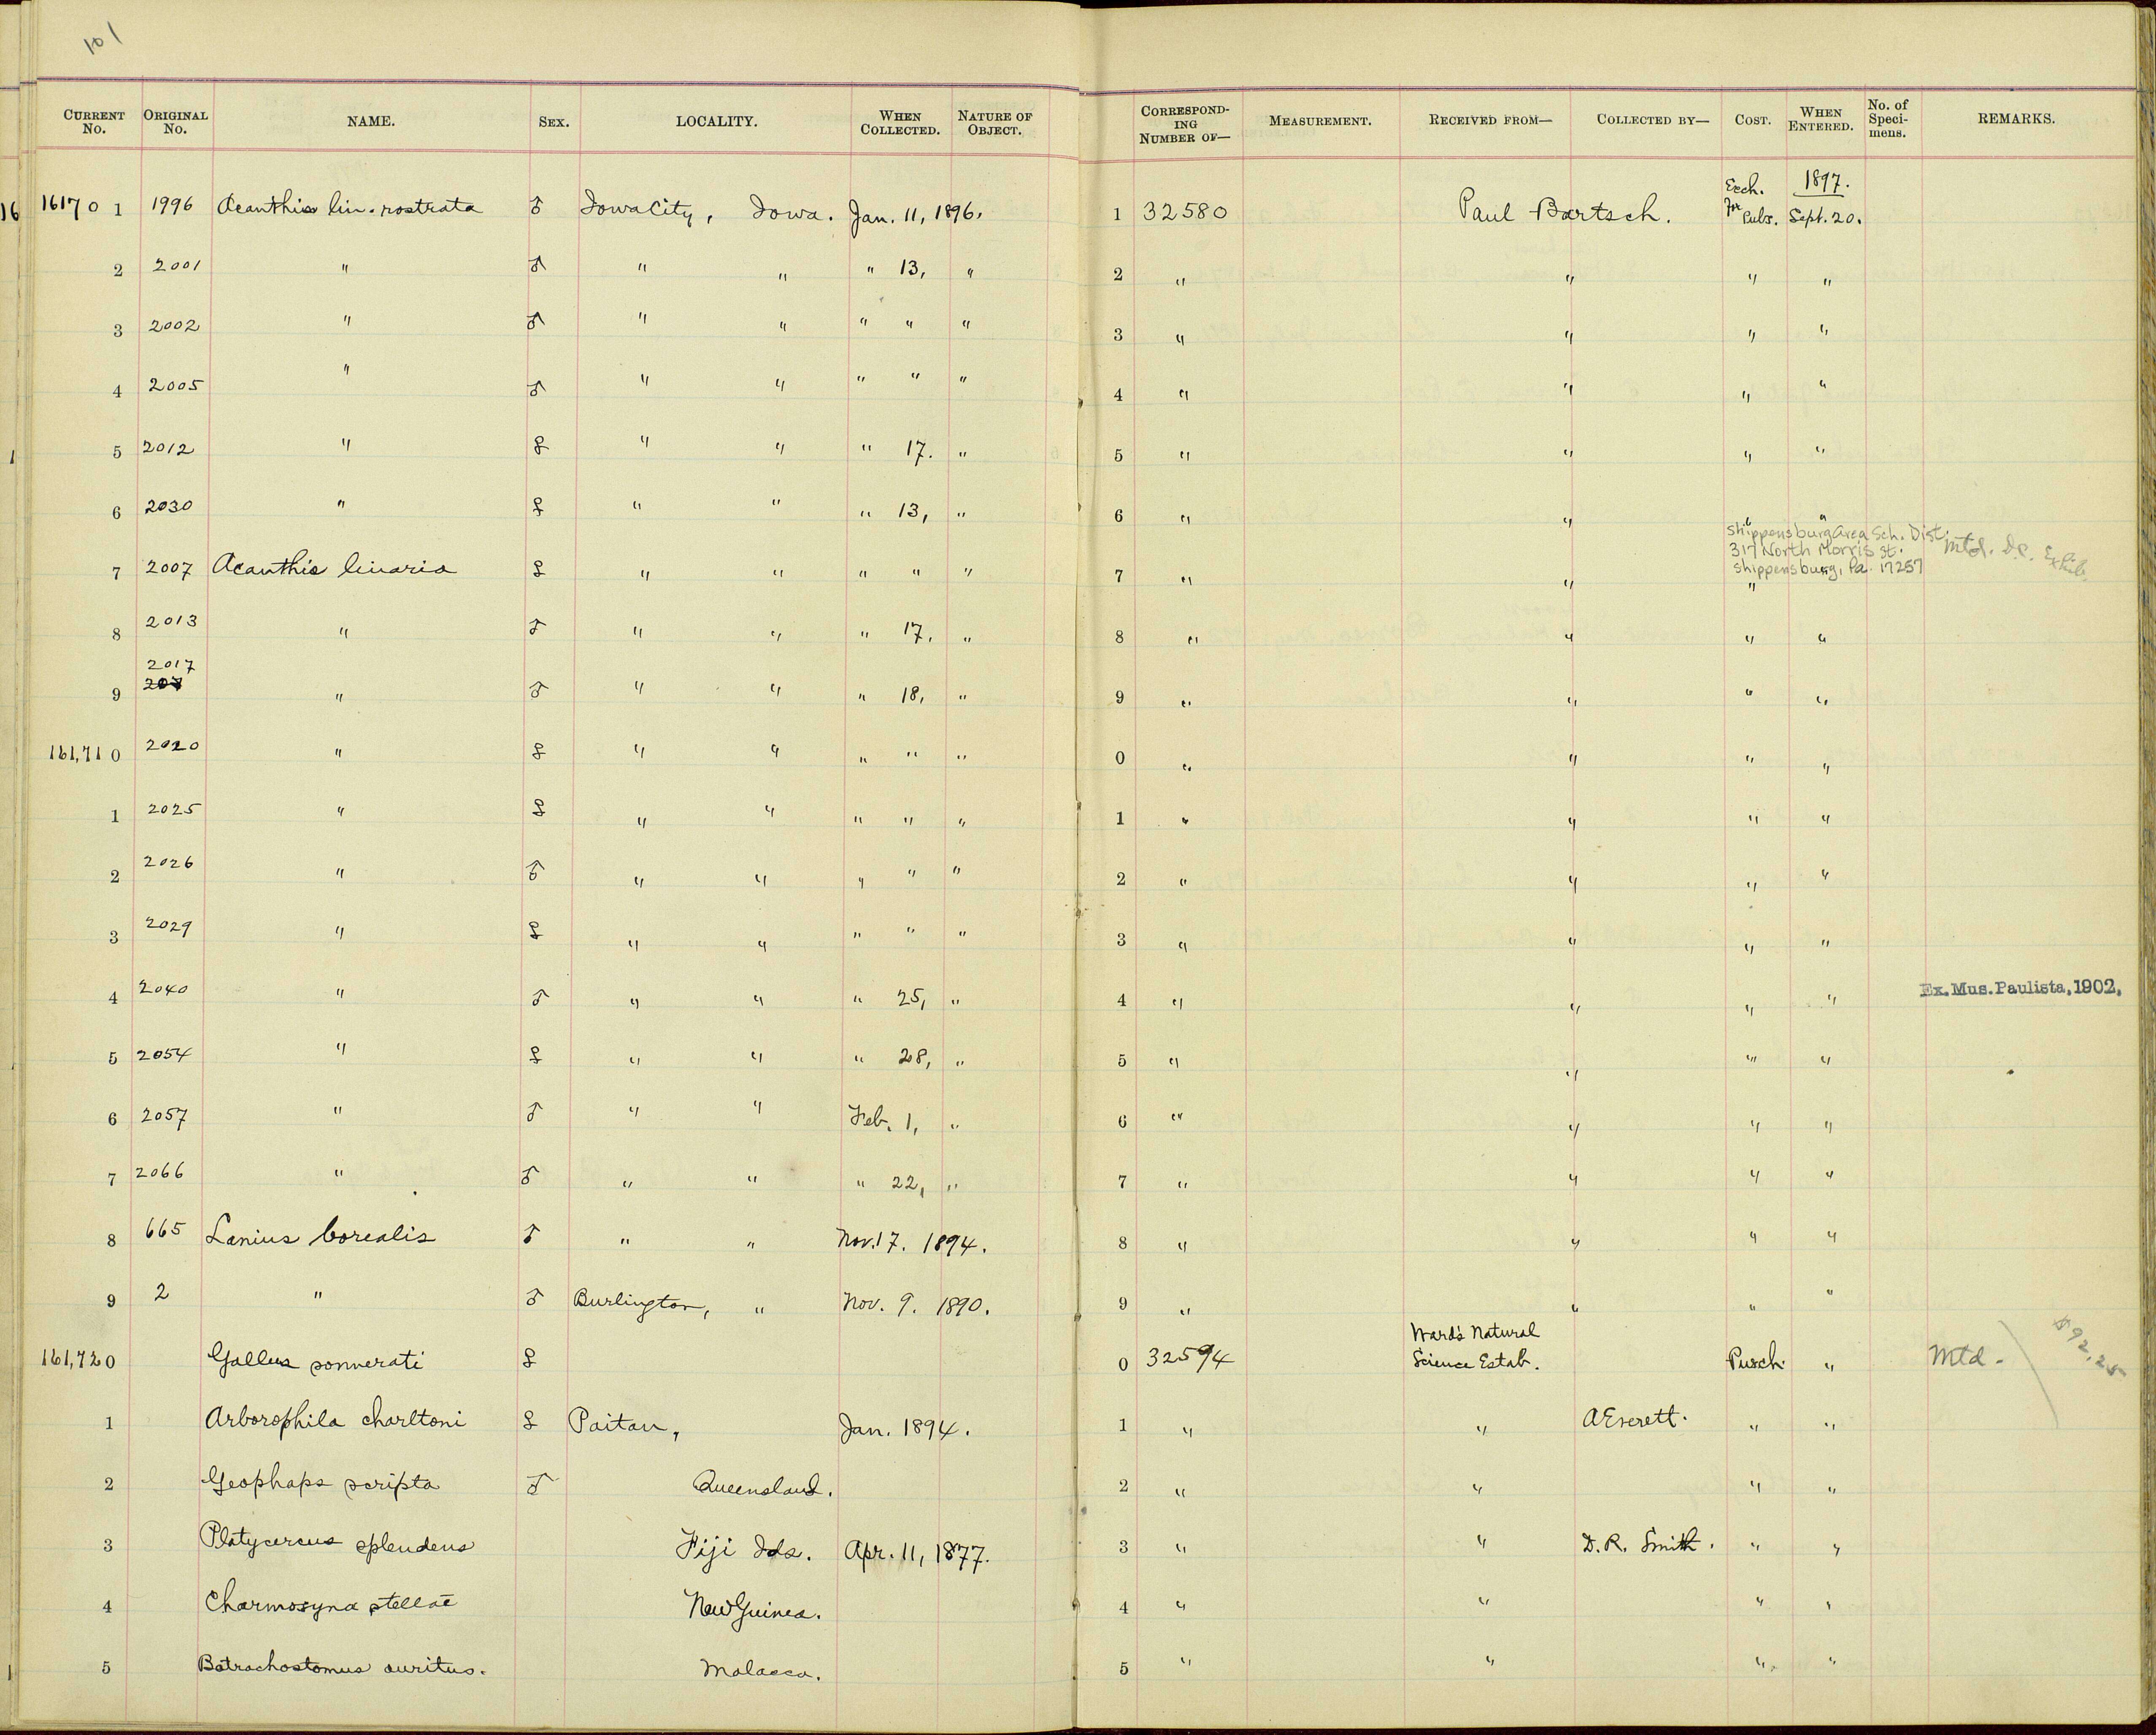 101
CURRENT No. ORIGINAL No. NAME. SEX. LOCALITY. WHEN COLLECTED. NATURE OF OBJECT. CORRESPONDING NUMBER OF— MEASUREMENT. RECEIVED FROM— COLLECTED BY— COST. WHEN ENTERED. No. of Specimens. REMARKS.
16 16170 1 1996 Acanthis lin. rostrata ♂ Iowa City, Iowa. Jan. 11, 1896. 1 32580 Paul Bartsch. Exch. for Pubs. 1897. Sept. 20.
2 2001 " ♂ " " " 13, " 2 " " " "
3 2002 " ♂ " " " " " 3 " " " "
4 2005 " ♂ " " " " " 4 " " " "
1 5 2012 " ♀ " " " 17. " 5 " " " "
6 2030 " ♀ " " " 13, " 6 " " " "
Shippensburg Area Sch. Dist.
317 North Morris St.
Shippensburg, Pa. 17257
7 2007 Acanthis linaria ♀ " " " " " 7 " " " " Mtd. Exhib.
8 2013 " ♂ " " " 17, " 8 " " " "
2017
9 207 " ♂ " " " 18, " 9 " " " "
161,71 0 2020 " ♀ " " " " " 0 " " " "
1 2025 " ♀ " " " " " 1 " " " "
2 2026 " ♂ " " " " " 2 " " " "
3 2029 " ♀ " " " " " 3 " " " "
4 2040 " ♂ " " " 25, " 4 " " " " Ex. Mus. Paulista, 1902.
5 2054 " ♀ " " " 28, " 5 " " " "
6 2057 " ♂ " " Feb. 1, " 6 " " " "
7 2066 " ♂ " " " 22, " 7 " " " "
8 665 Lanius borealis ♂ " " Nov. 17. 1894. 8 " " " "
9 2 " ♂ Burlington, " Nov. 9. 1890. 9 " " " "
161,72 0 Gallus sonnerati ♀ 0 32594 Ward's Natural Science Estab. Purch. " Mtd. $92.25
1 Arborophila charltoni ♀ Paitan, Jan. 1894. 1 " " A Everett. " "
2 Geophaps scripta ♂ Queensland. 2 " " " "
3 Platycercus splendens Fiji Ids. Apr. 11, 1877. 3 " " D. R. Smith. " "
4 Charmosyna stellae New Guinea. 4 " " " "
1 5 Batrachostomus auritus. Malacca. 5 " " " "